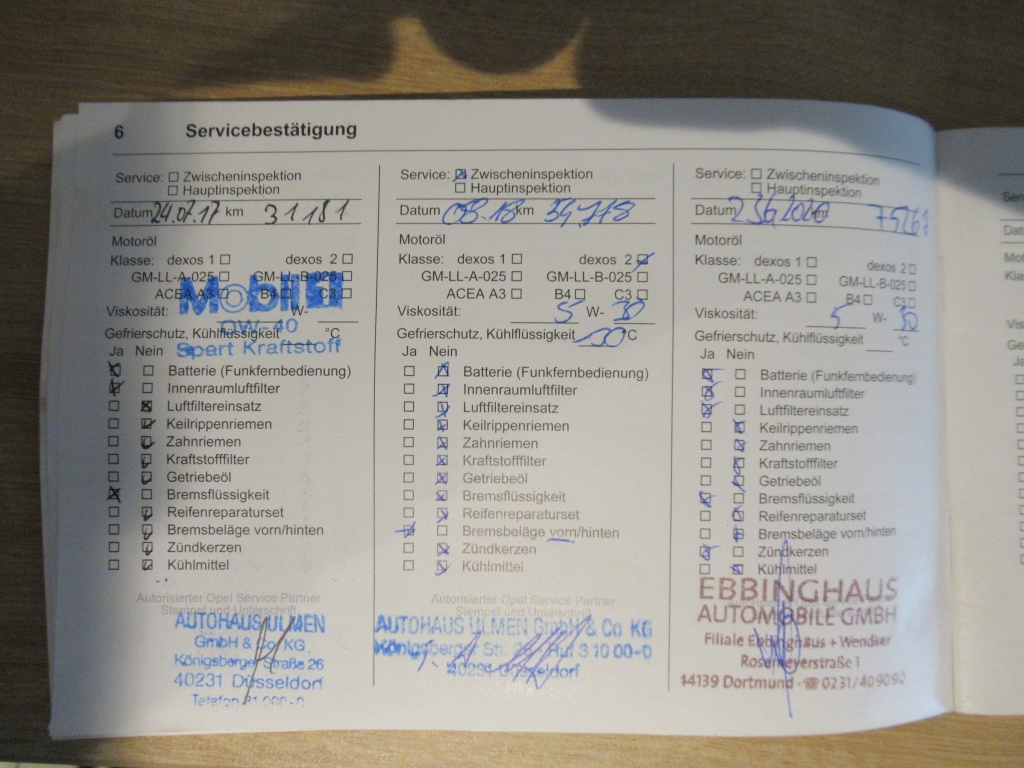 6 Servicebestätigung
Service: ☐ Zwischeninspektion
☐ Hauptinspektion
Datum 24.07.17 km 31181
Motoröl
Klasse: dexos 1 ☐ dexos 2 ☐
GM-LL-A-025 ☐ GM-LL-B-025 ☐
ACEA A3 ☐ B4 ☐ C3 ☐
Mobil 1
Viskosität: W-
OW-40
Gefrierschutz, Kühlflüssigkeit °C
Spart Kraftstoff
Ja Nein
☒ ☐ Batterie (Funkfernbedienung)
☒ ☐ Innenraumluftfilter
☐ ☒ Luftfiltereinsatz
☐ ☒ Keilrippenriemen
☐ ☒ Zahnriemen
☐ ☒ Kraftstofffilter
☐ ☒ Getriebeöl
☒ ☐ Bremsflüssigkeit
☐ ☒ Reifenreparaturset
☐ ☒ Bremsbeläge vorn/hinten
☐ ☒ Zündkerzen
☐ ☒ Kühlmittel
Autorisierter Opel Service Partner
Stempel und Unterschrift
AUTOHAUS ULMEN
GmbH & Co KG
Königsberger Straße 26
40231 Düsseldorf
Telefon
Service: ☒ Zwischeninspektion
☐ Hauptinspektion
Datum 08.18 km 54778
Motoröl
Klasse: dexos 1 ☐ dexos 2 ☒
GM-LL-A-025 ☐ GM-LL-B-025 ☐
ACEA A3 ☐ B4 ☐ C3 ☐
Viskosität: 5 W- 30
Gefrierschutz, Kühlflüssigkeit °C
Ja Nein
☐ ☒ Batterie (Funkfernbedienung)
☐ ☒ Innenraumluftfilter
☐ ☒ Luftfiltereinsatz
☐ ☒ Keilrippenriemen
☐ ☒ Zahnriemen
☐ ☒ Kraftstofffilter
☐ ☒ Getriebeöl
☐ ☒ Bremsflüssigkeit
☐ ☒ Reifenreparaturset
☒ ☐ Bremsbeläge vorn/hinten
☐ ☒ Zündkerzen
☐ ☒ Kühlmittel
Autorisierter Opel Service Partner
Stempel und Unterschrift
AUTOHAUS ULMEN GmbH & Co KG
Königsberger Str. 26 Ruf 3 10 00-0
40231 Düsseldorf
Service: ☐ Zwischeninspektion
☐ Hauptinspektion
Datum 23.6.2020 km
Motoröl
Klasse: dexos 1 ☐ dexos 2 ☐
GM-LL-A-025 ☐ GM-LL-B-025 ☐
ACEA A3 ☐ B4 ☐ C3 ☐
Viskosität: 5 W- 30
Gefrierschutz, Kühlflüssigkeit °C
Ja Nein
☒ ☐ Batterie (Funkfernbedienung)
☒ ☐ Innenraumluftfilter
☒ ☐ Luftfiltereinsatz
☐ ☒ Keilrippenriemen
☐ ☒ Zahnriemen
☐ ☒ Kraftstofffilter
☐ ☒ Getriebeöl
☒ ☐ Bremsflüssigkeit
☐ ☒ Reifenreparaturset
☐ ☒ Bremsbeläge vorn/hinten
☒ ☐ Zündkerzen
☐ ☒ Kühlmittel
EBBINGHAUS
AUTOMOBILE GMBH
Filiale Ebbinghaus + Wendker
Rosemeyerstraße 1
44139 Dortmund · ☎ 0231/409090